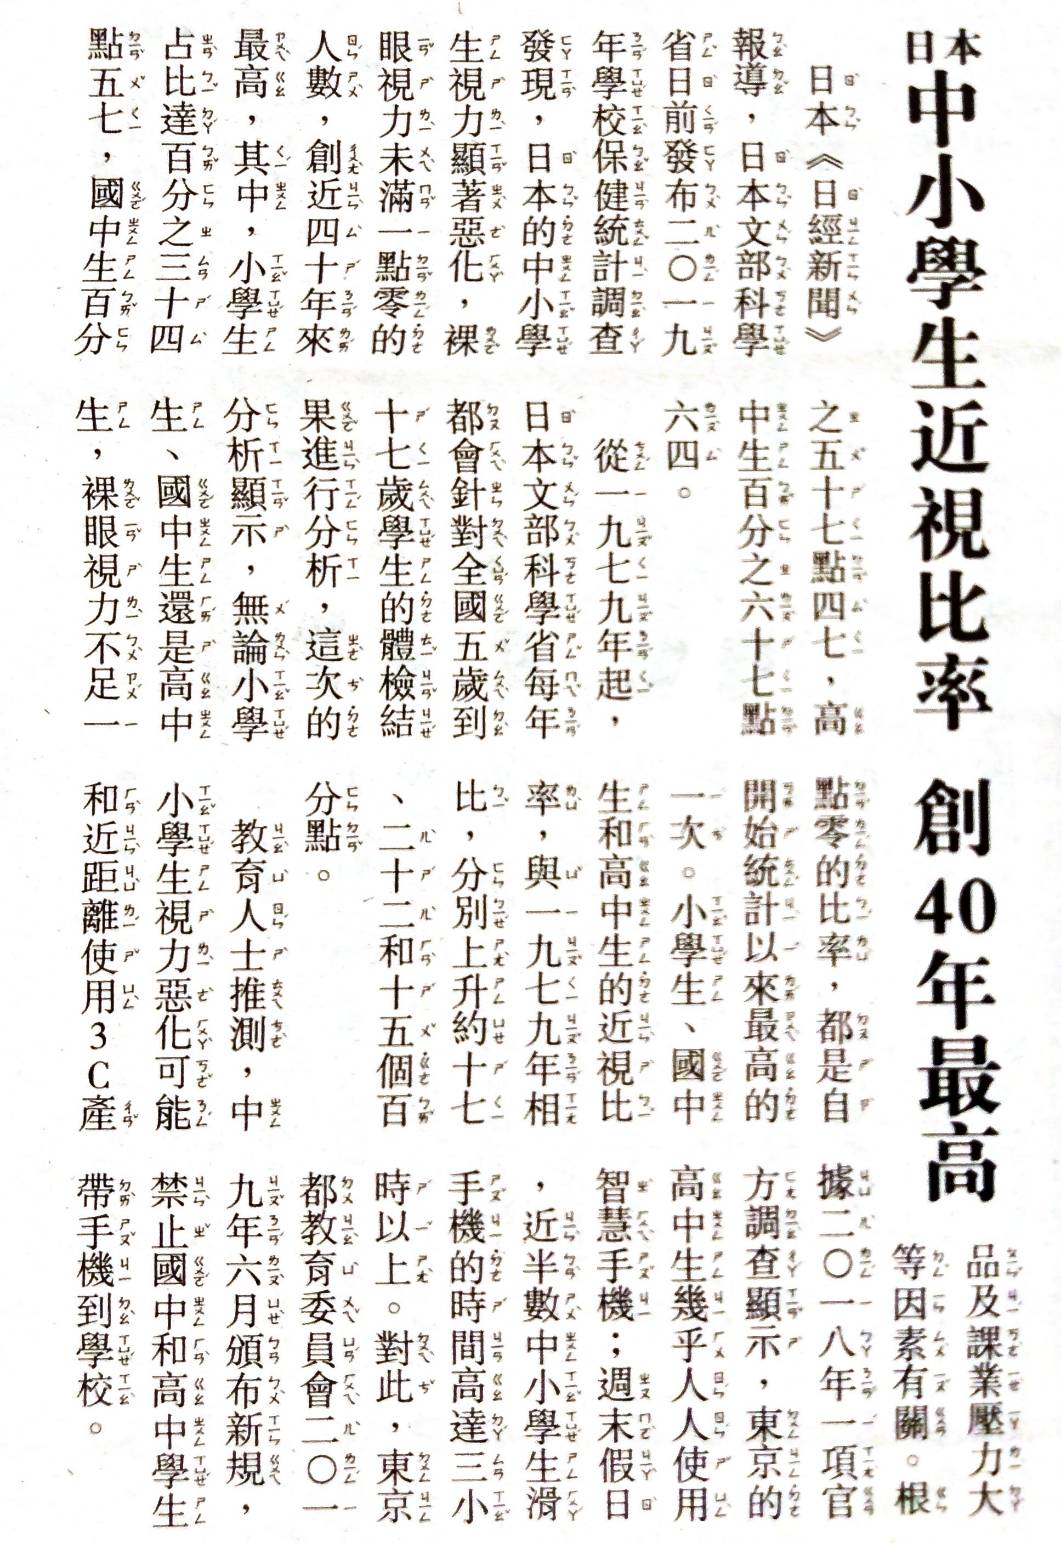 日本
中小學生近視比率 創40年最高
日本《日經新聞》
報導，日本文部科學
省日前發布二〇一九
年學校保健統計調查
發現，日本的中小學
生視力顯著惡化，裸
眼視力未滿一點零的
人數，創近四十年來
最高，其中，小學生
占比達百分之三十四
點五七，國中生百分
之五十七點四七，高
中生百分之六十七點
六四。
從一九七九年起，
日本文部科學省每年
都會針對全國五歲到
十七歲學生的體檢結
果進行分析，這次的
分析顯示，無論小學
生、國中生還是高中
生，裸眼視力不足一
點零的比率，都是自
開始統計以來最高的
一次。小學生、國中
生和高中生的近視比
率，與一九七九年相
比，分別上升約十七
、二十二和十五個百
分點。
教育人士推測，中
小學生視力惡化可能
和近距離使用3C產
品及課業壓力大
等因素有關。根
據二〇一八年一項官
方調查顯示，東京的
高中生幾乎人人使用
智慧手機；週末假日
，近半數中小學生滑
手機的時間高達三小
時以上。對此，東京
都教育委員會二〇一
九年六月頒布新規，
禁止國中和高中學生
帶手機到學校。